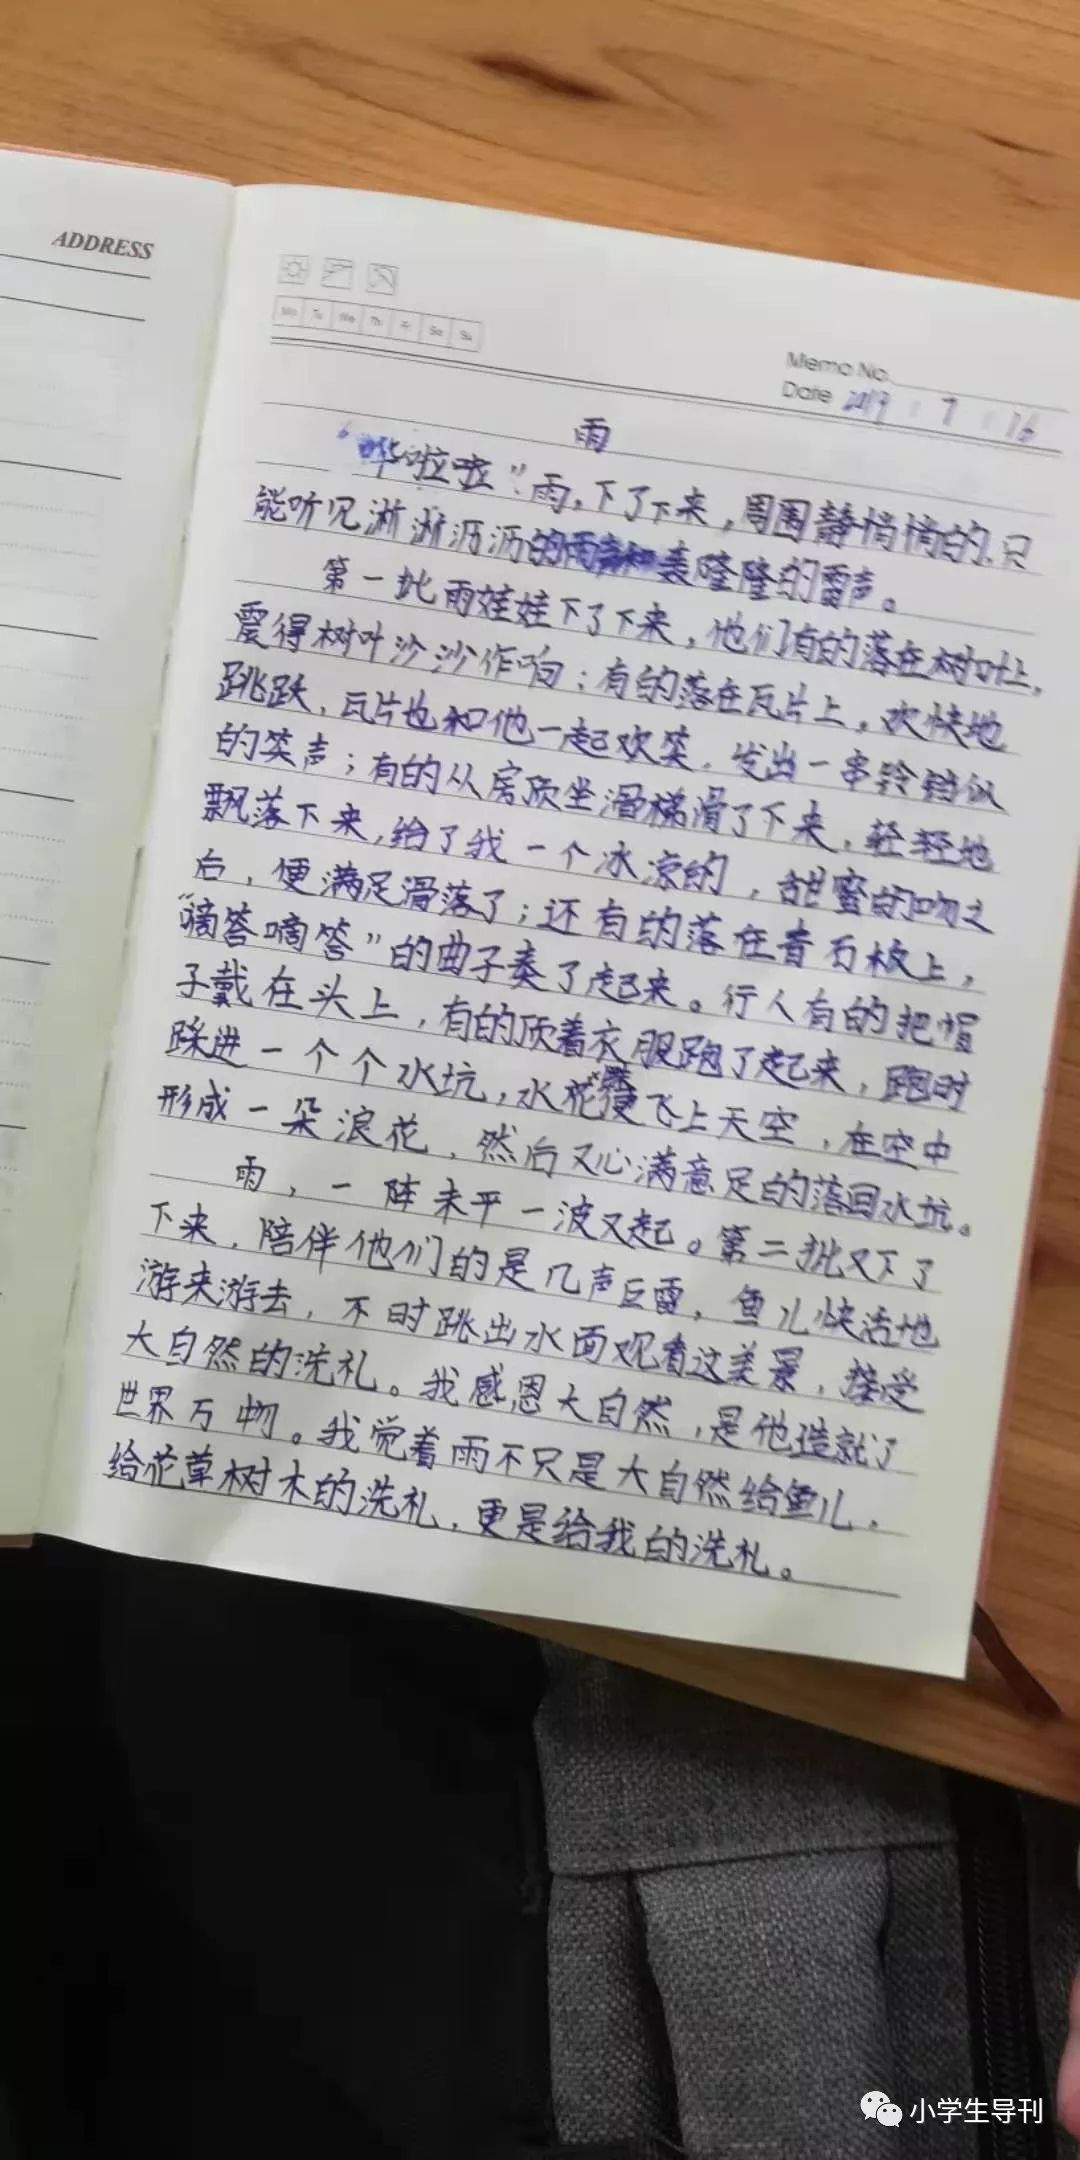 ADDRESS
Mo Tu We Th Fr Sa Su
Memo No.
Date 2019 7 16
雨
“哗啦啦”雨,下了下来,周围静悄悄的,只
能听见淅淅沥沥的雨声和轰隆隆的雷声。
第一批雨娃娃下了下来,他们有的落在树叶上,
震得树叶沙沙作响;有的落在瓦片上,欢快地
跳跃,瓦片也和他一起欢笑,发出一串铃铛似
的笑声;有的从房顶坐滑梯滑了下来,轻轻地
飘落下来,给了我一个冰凉的,甜蜜的吻之
后,便满足滑落了;还有的落在青石板上,
“嘀答嘀答”的曲子奏了起来。行人有的把帽
子戴在头上,有的顶着衣服跑了起来,跑时
踩进一个个水坑,水花便飞上天空,在空中
形成一朵浪花,然后又心满意足的落回水坑。
雨,一阵未平一波又起。第二批又下了
下来,陪伴他们的是几声巨雷,鱼儿快活地
游来游去,不时跳出水面观看这美景,接受
大自然的洗礼。我感恩大自然,是他造就了
世界万物。我觉着雨不只是大自然给鱼儿,
给花草树木的洗礼,更是给我的洗礼。
小学生导刊